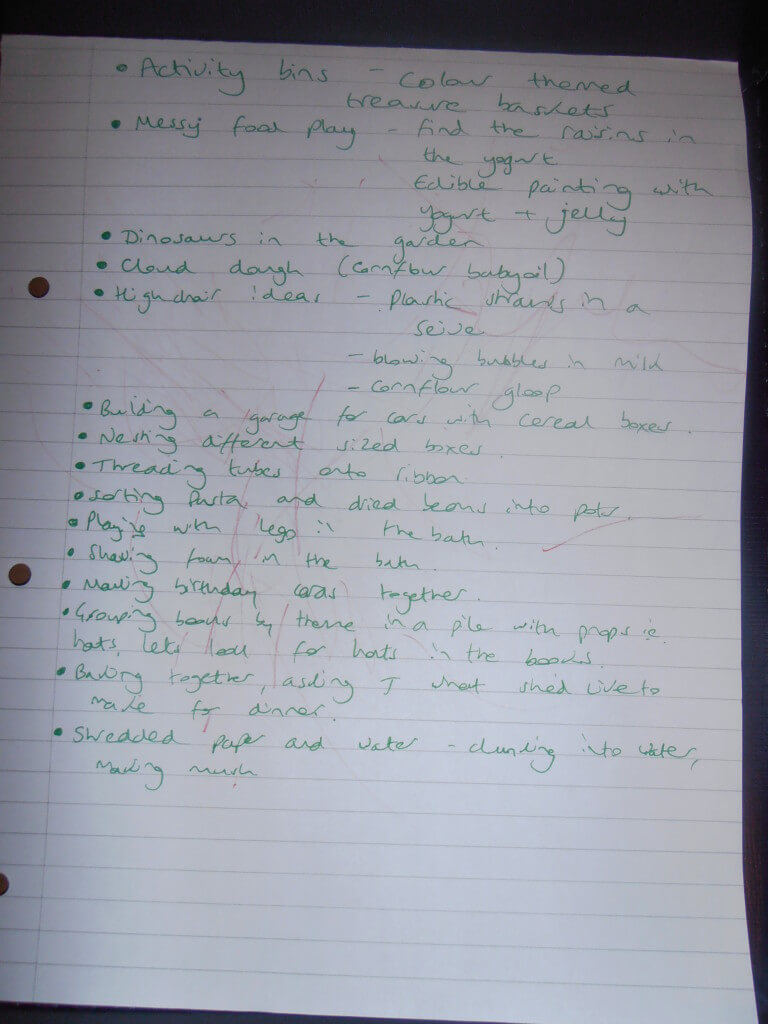 • Activity bins - Colour themed
treasure baskets
• Messy food play - find the raisins in
the yogurt
Edible painting with
yogurt + jelly
• Dinosaurs in the garden
• Cloud dough (cornflour babyoil)
• Highchair ideas - plastic straws in a
seive
- blowing bubbles in milk
- cornflour gloop
• Building a garage for cars with cereal boxes.
• Nesting different sized boxes.
• Threading tubes onto ribbon
• Sorting pasta and dried beans into pots.
• Playing with lego in the bath.
• Shaving foam in the bath.
• Making birthday cards together.
• Grouping books by theme in a pile with props ie.
hats, lets look for hats in the books.
• Baking together, asking I what shed like to
make for dinner.
• Shredded paper and water - dunking into water,
making mush